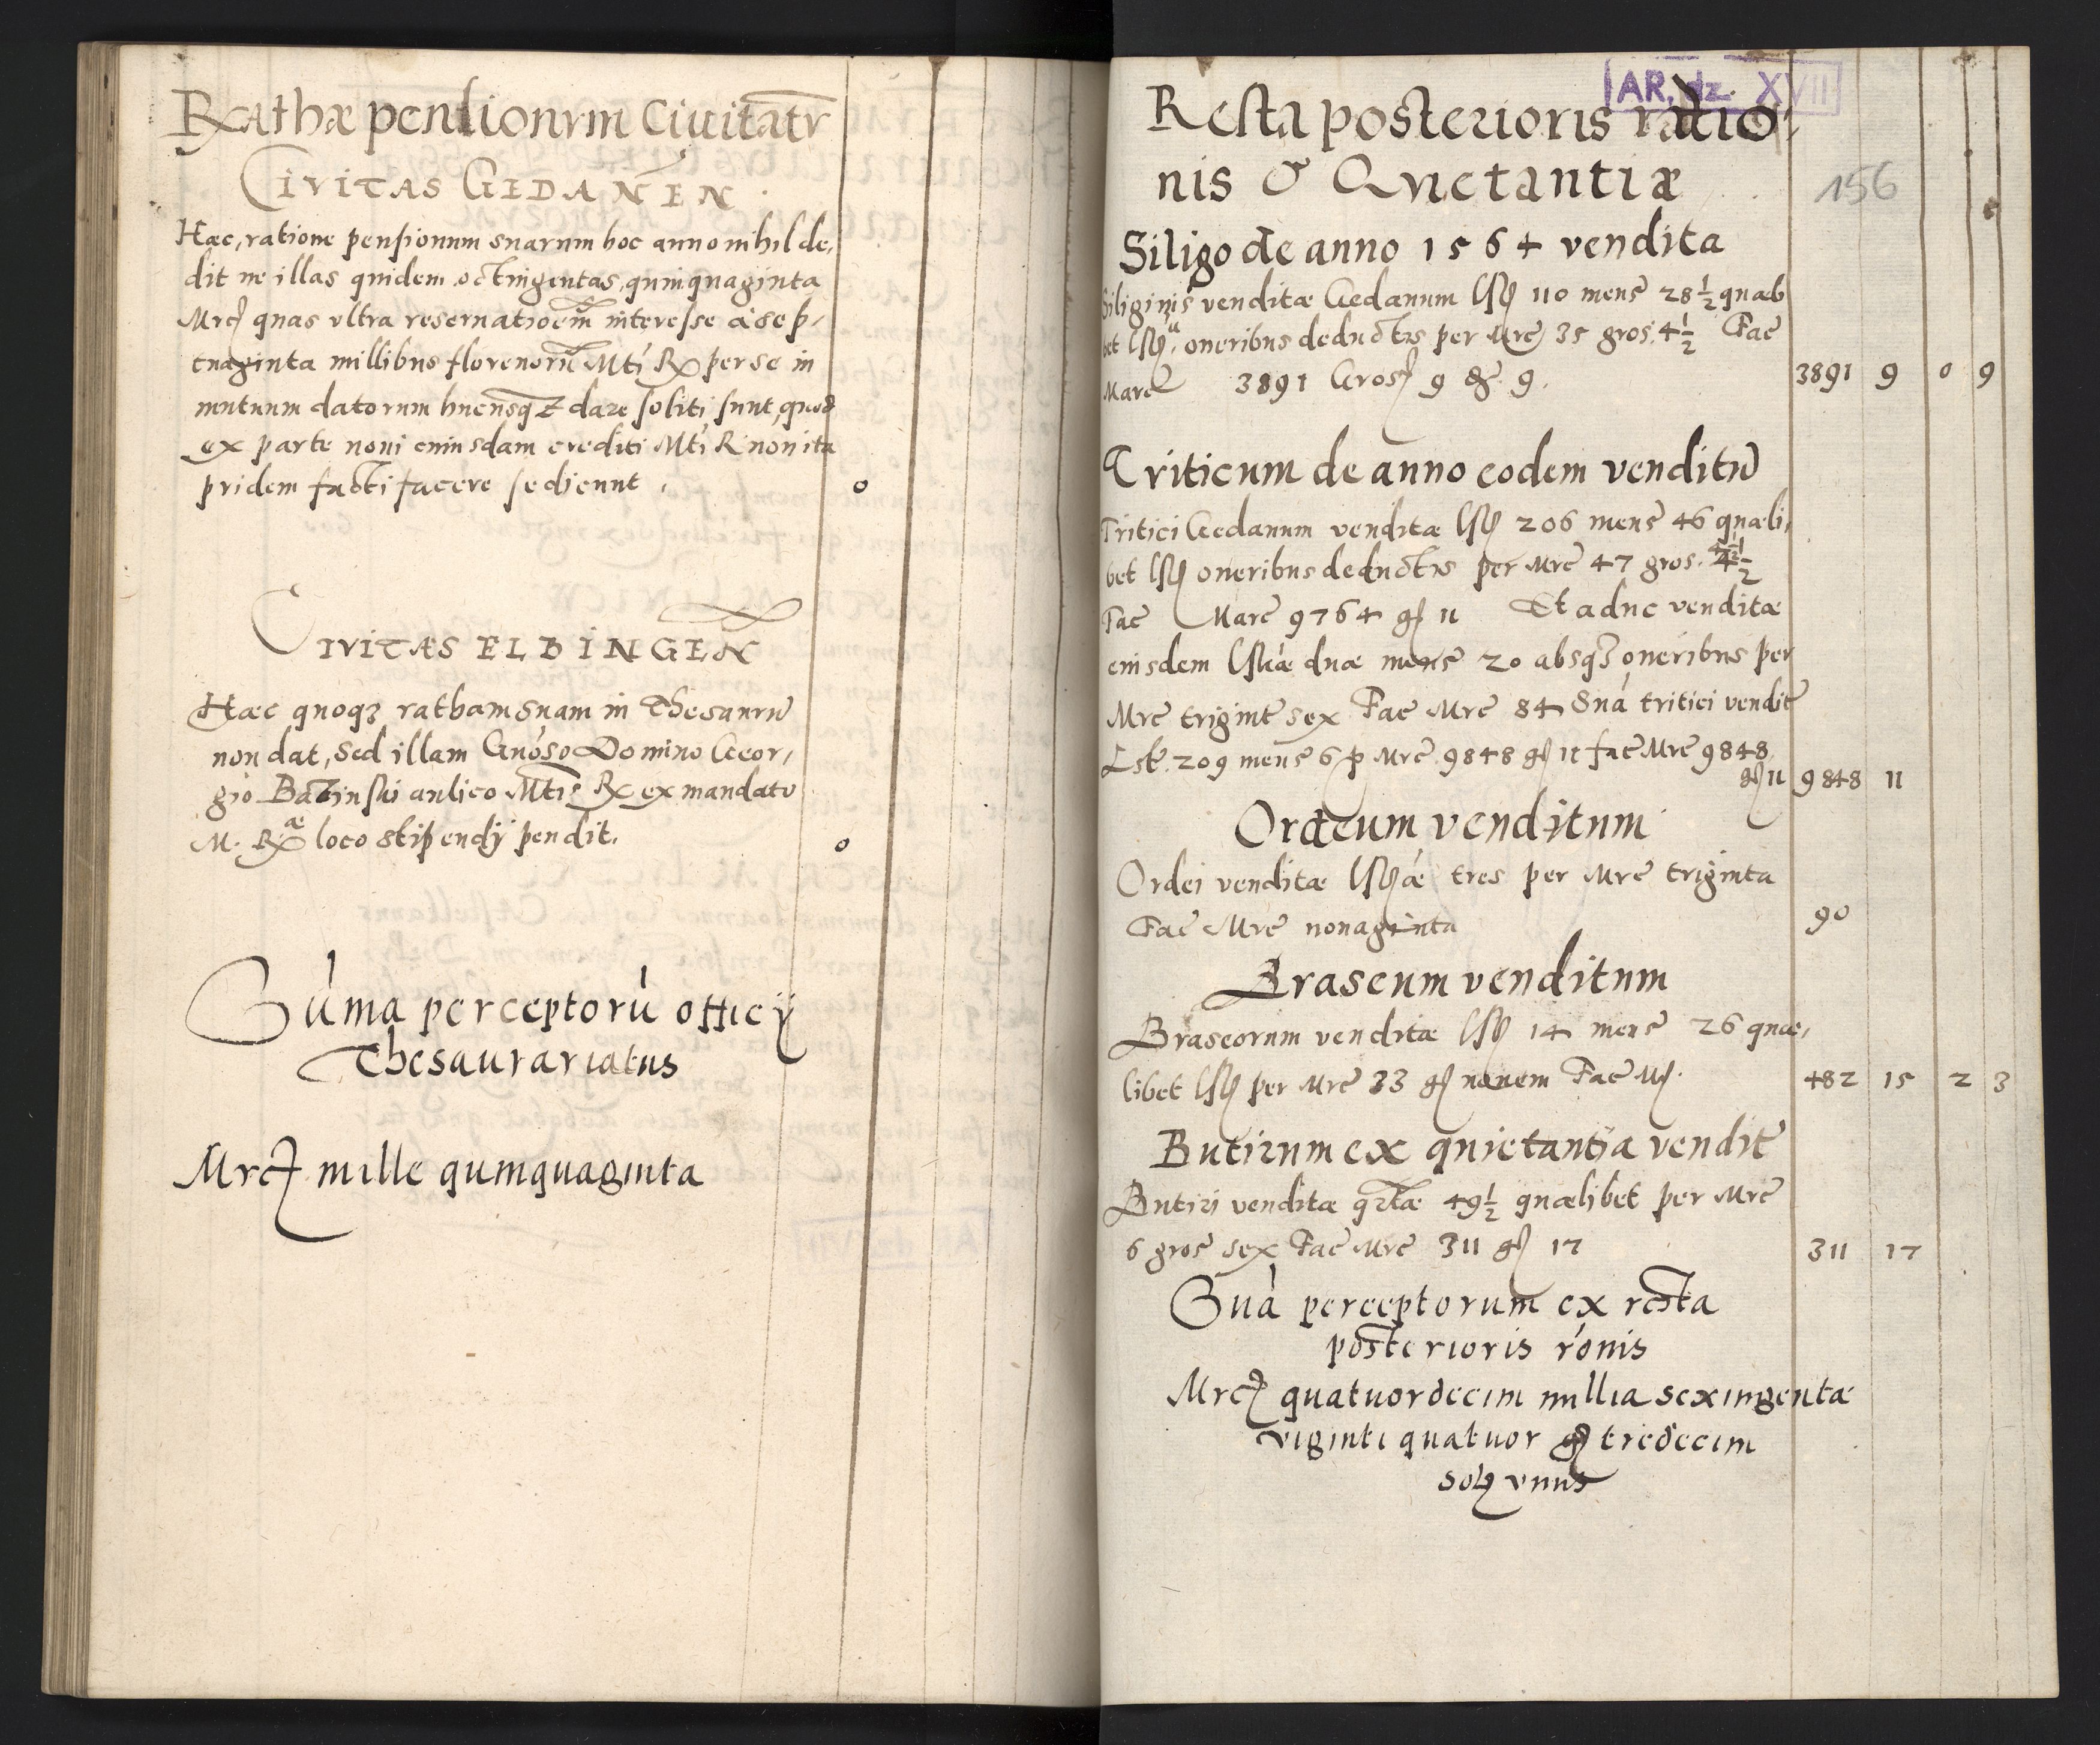 Rathæ pensionum Ciuitatũ
CIVITAS GEDANEN.
Hæc, ratione pensionum suarum hoc anno nihil de,
dit ne illas quidem octingentas, quinquaginta
Mrc quas vltra reseruatioem interesse à sep,
tuaginta millibus florenorũ Mti Rx per se in
mutuum datorum hucusq dare soliti sunt, quod
ex parte noui cuiusdam crediti Mti R non ita
pridem facti facere se dicunt. 0
CIVITAS ELBINGEN
Hæc quoq3 ratham suam in Thesaurũ
non dat, sed illam Gnoso Domino Geor,
gio Bazinski aulico Mtis Rx ex mandato
M. Rxæ loco stipendij pendit. 0
Sũma perceptorũ officij
Thesaurariatus
Mrc mille quinquaginta
AR, dz. XVII
Resta posterioris ratio,
nis & Quictantiæ
156
Siligo de anno 1564 vendita
Siliginis venditæ Gedanum lst 110 mens 28 1/2 quæli
bet lst oneribus deductis per Mrc 35 gros. 4 1/2 Fac
Marc 3891 Gros 9 & 9. 3891 9 0 9
Triticum de anno eodem venditũ
Tritici Gedanum venditæ lst 206 mens 46 quæli,
bet lst oneribus deductis per Mrc 47 gros. 4 1/2
Fac Marc 9764 g 11 Et aduc venditæ
eiusdem lstæ duæ mens 20 absq3 oneribus per
Mrc trigint sex Fac Mrc 84 Suá tritici vendit
Lst. 209 mens 6 p Mrc 9848 g 11 fac Mrc 9848
g 11 9848 11
Ordeum venditum
Ordei venditæ lstæ tres per Mrc triginta
Fac Mrc nonaginta 90
Braseum venditum
Braseorum venditæ lst 14 mens 26 quæ,
libet lst per Mrc 33 g nouem Fac M. 482 15 2 3
Butirum ex quietantia vendit
Butiri venditæ qrtæ 49 1/2 quælibet per Mrc
6 gros sex Fac Mrc 311 g 17 311 17
Suá perceptorum ex resta
posterioris rónis
Mrc quatuordecim millia sexingentæ
viginti quatuor g tredecim
sol vnus